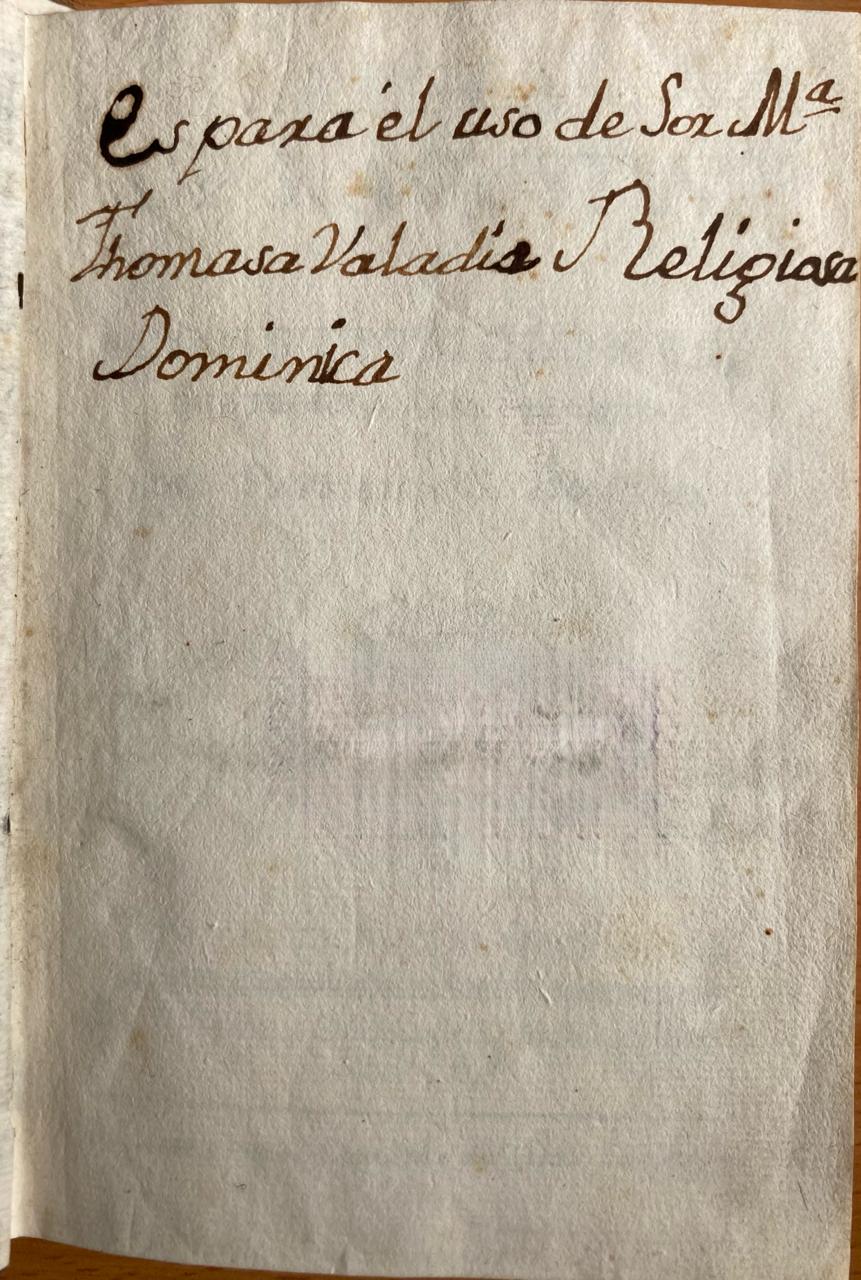 Es para el uso de Sor Mª
Thomasa Valadía Religiosa
Dominica